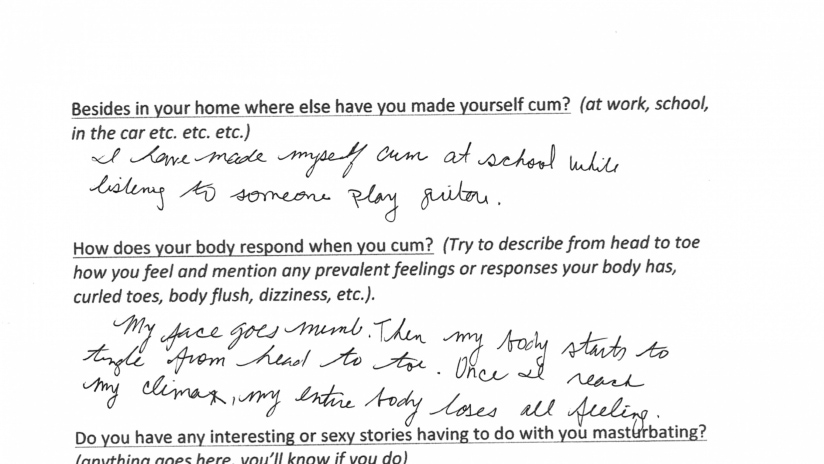 Besides in your home where else have you made yourself cum? (at work, school,
in the car etc. etc. etc.)
I have made myself cum at school while
listening to someone play guitar.
How does your body respond when you cum? (Try to describe from head to toe
how you feel and mention any prevalent feelings or responses your body has,
curled toes, body flush, dizziness, etc.).
My face goes numb. Then my body starts to
tingle from head to toe. Once I reach
my climax, my entire body loses all feeling.
Do you have any interesting or sexy stories having to do with you masturbating?
(anything goes here, you'll know if you do)